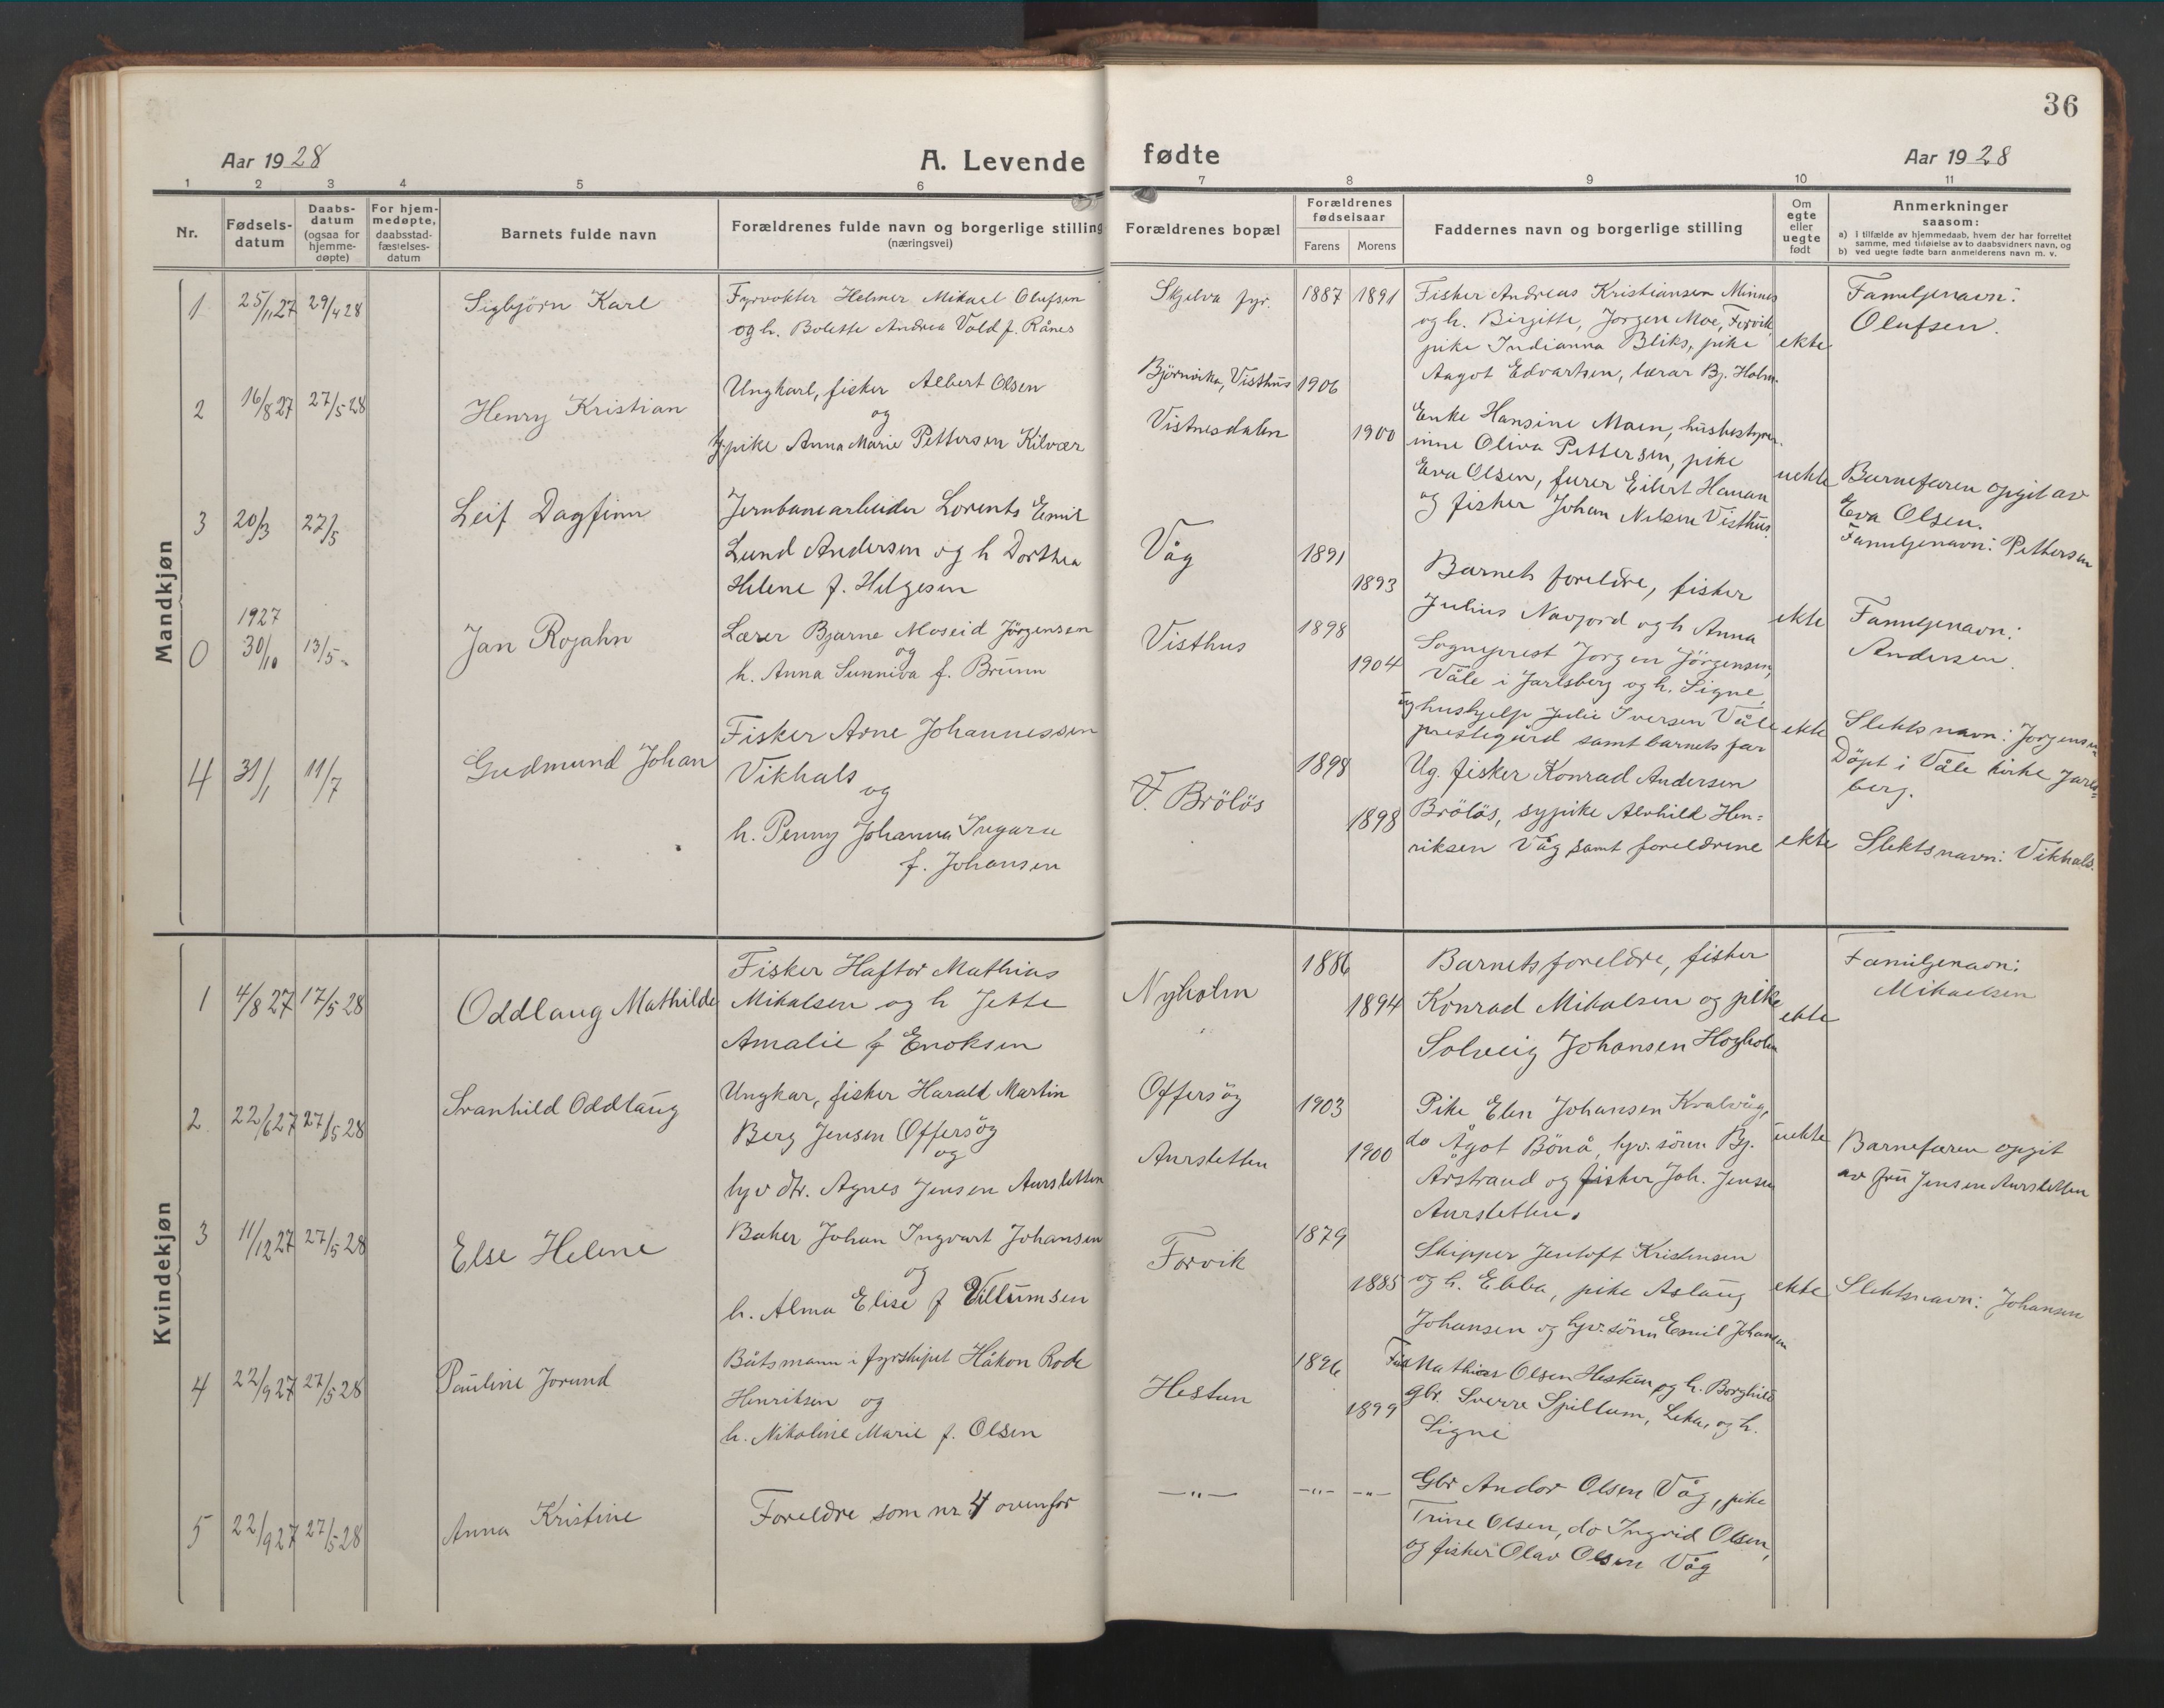 36
Aar 1928
A. Levende fødte
Aar 1928
1 2 3 4 5 6 7 8 9 10 11
Nr.
Fødsels-
datum
Daabs-
datum
(ogsaa for
hjemme-
døpte)
For hjem-
medøpte,
daabsstad-
fæstelses-
datum
Barnets fulde navn
Forældrenes fulde navn og borgerlige stilling
(næringsvei)
Forældrenes bopæl
Forældrenes
fødselsaar
Farens
Morens
Faddernes navn og borgerlige stilling
Om
egte
eller
uegte
født
Anmerkninger
saasom:
a) i tilfælde av hjemmedaab, hvem der har forrettet
samme, med tilføielse av to daabsvidners navn, og
b) ved uegte fødte barn anmelderens navn m. v.
Mandkjøn
1
25/11 27
29/4 28
Sigbjörn Karl
Fyrvokter Helmer Mikael Olufsen
og h. Bolette Andrea Vold f. Rånes
Skjelva fyr.
1887
1891
Fisker Andreas Kristiansen Minnes
og h. Birgitte, Jørgen Moe, Forvik,
pike Indianna Bliks, pike
Aagot Edvartsen, lærar Bj. Holm.
ekte
Familjenavn:
Olufsen.
2
16/8 27
27/5 28
Henry Kristian
Ungkarl, fisker Albert Olsen
og
pike Anna Marie Pettersen Kilvær
Björnvika, Visthus
Vistnesdalen
1906
1900
Enke Hansine Moen, husbestyrer-
inne Oliva Pettersen, pike
Eva Olsen, furer Eilert Hanan
og fisker Johan Nilsen Visthus.
uekte
Barnefaren opgit av
Eva Olsen.
Familjenavn: Pettersen
3
20/3
27/5
Leif Dagfinn
Jernbanearbeider Lorents Emil
Lund Andersen og h Dorthea
Helene f. Helgesen
Våg
1891
1893
Barnets foreldre, fisker
Julius Navjord og h Anna
ekte
Familjenavn:
Andersen.
0
1927
30/10
13/5 -
Jan Rojahn
Lærer Bjarne Moseid Jörgensen
og
h. Anna Sunniva f. Brunn
Visthus
1898
1904
Sogneprest Jorgen Jörgensen,
Våle i Jarlsberg og h. Signe,
og hushjelp Julie Iversen Våle
prestegård samt barnets far
ekte
Slektsnavn: Jorgensen
Döpt i Våle kirke Jarls=
berg.
4
31/1
11/7
Gudmund Johan
Fisker Arne Johannessen
Vikhals
og
h. Penny Johanna Ingara
f. Johansen
V. Brölös
1898
1898
Ug. fisker Konrad Andersen
Brölös, sypike Alvhild Hen=
riksen Våg samt foreldrene
ekte
Slektsnavn: Vikhals.
Kvindekjøn
1
4/8 27
17/5 28
Oddlaug Mathilde
Fisker Haftor Mathias
Mikalsen og h Jette
Amalie f Enoksen
Nyholm
1886
1894
Barnets foreldre, fisker
Konrad Mikalsen og pike
Solveig Johansen Hogholm
ekte
Familjenavn:
Mikaelsen
2
22/6 27
27/5 28
Svanhild Oddlaug
Ungkar, fisker Harald Martin
Berg Jensen Offersög
og
hjv dtr. Agnes Jensen Aursletten
Offersög
Aursletten
1903
1900
Pike Elen Johansen Kvalvåg,
do Ågot Bönå, hjv. sönn Bj.
Årstrand og fisker Joh. Jensen
Aursletten.
uekte
Barnefaren opgit
av fru Jensen Aursletten
3
11/12 27
27/5 28
Else Helene
Baker Johan Ingvart Johansen
og
h. Alma Elise f Villumsen
Forvik
1879
1885
Skipper Jentoft Kristensen
og h. Ebba, pike Aslaug
Johansen og hjv. sönn Emil Johansen
ekte
Slektsnavn: Johansen
4
22/9 27
27/5 28
Pauline Jorund
Båtsmann i fyrskipet Håkon Rode
Henriksen og
h. Nikoline Marie f. Olsen
Hestun
1896
1899
Mathias Olsen Hestun og h. Borghild
Gbr. Sverre Spillum, Leka, og h.
Signe
5
22/9 27
27/5 28
Anna Kristine
Foreldre som nr 4 ovenfor
—"—
—"—
—"—
Gbr Andor Olsen Våg, pike
Trine Olsen, do Ingrid Olsen,
og fisker Olav Olsen Våg